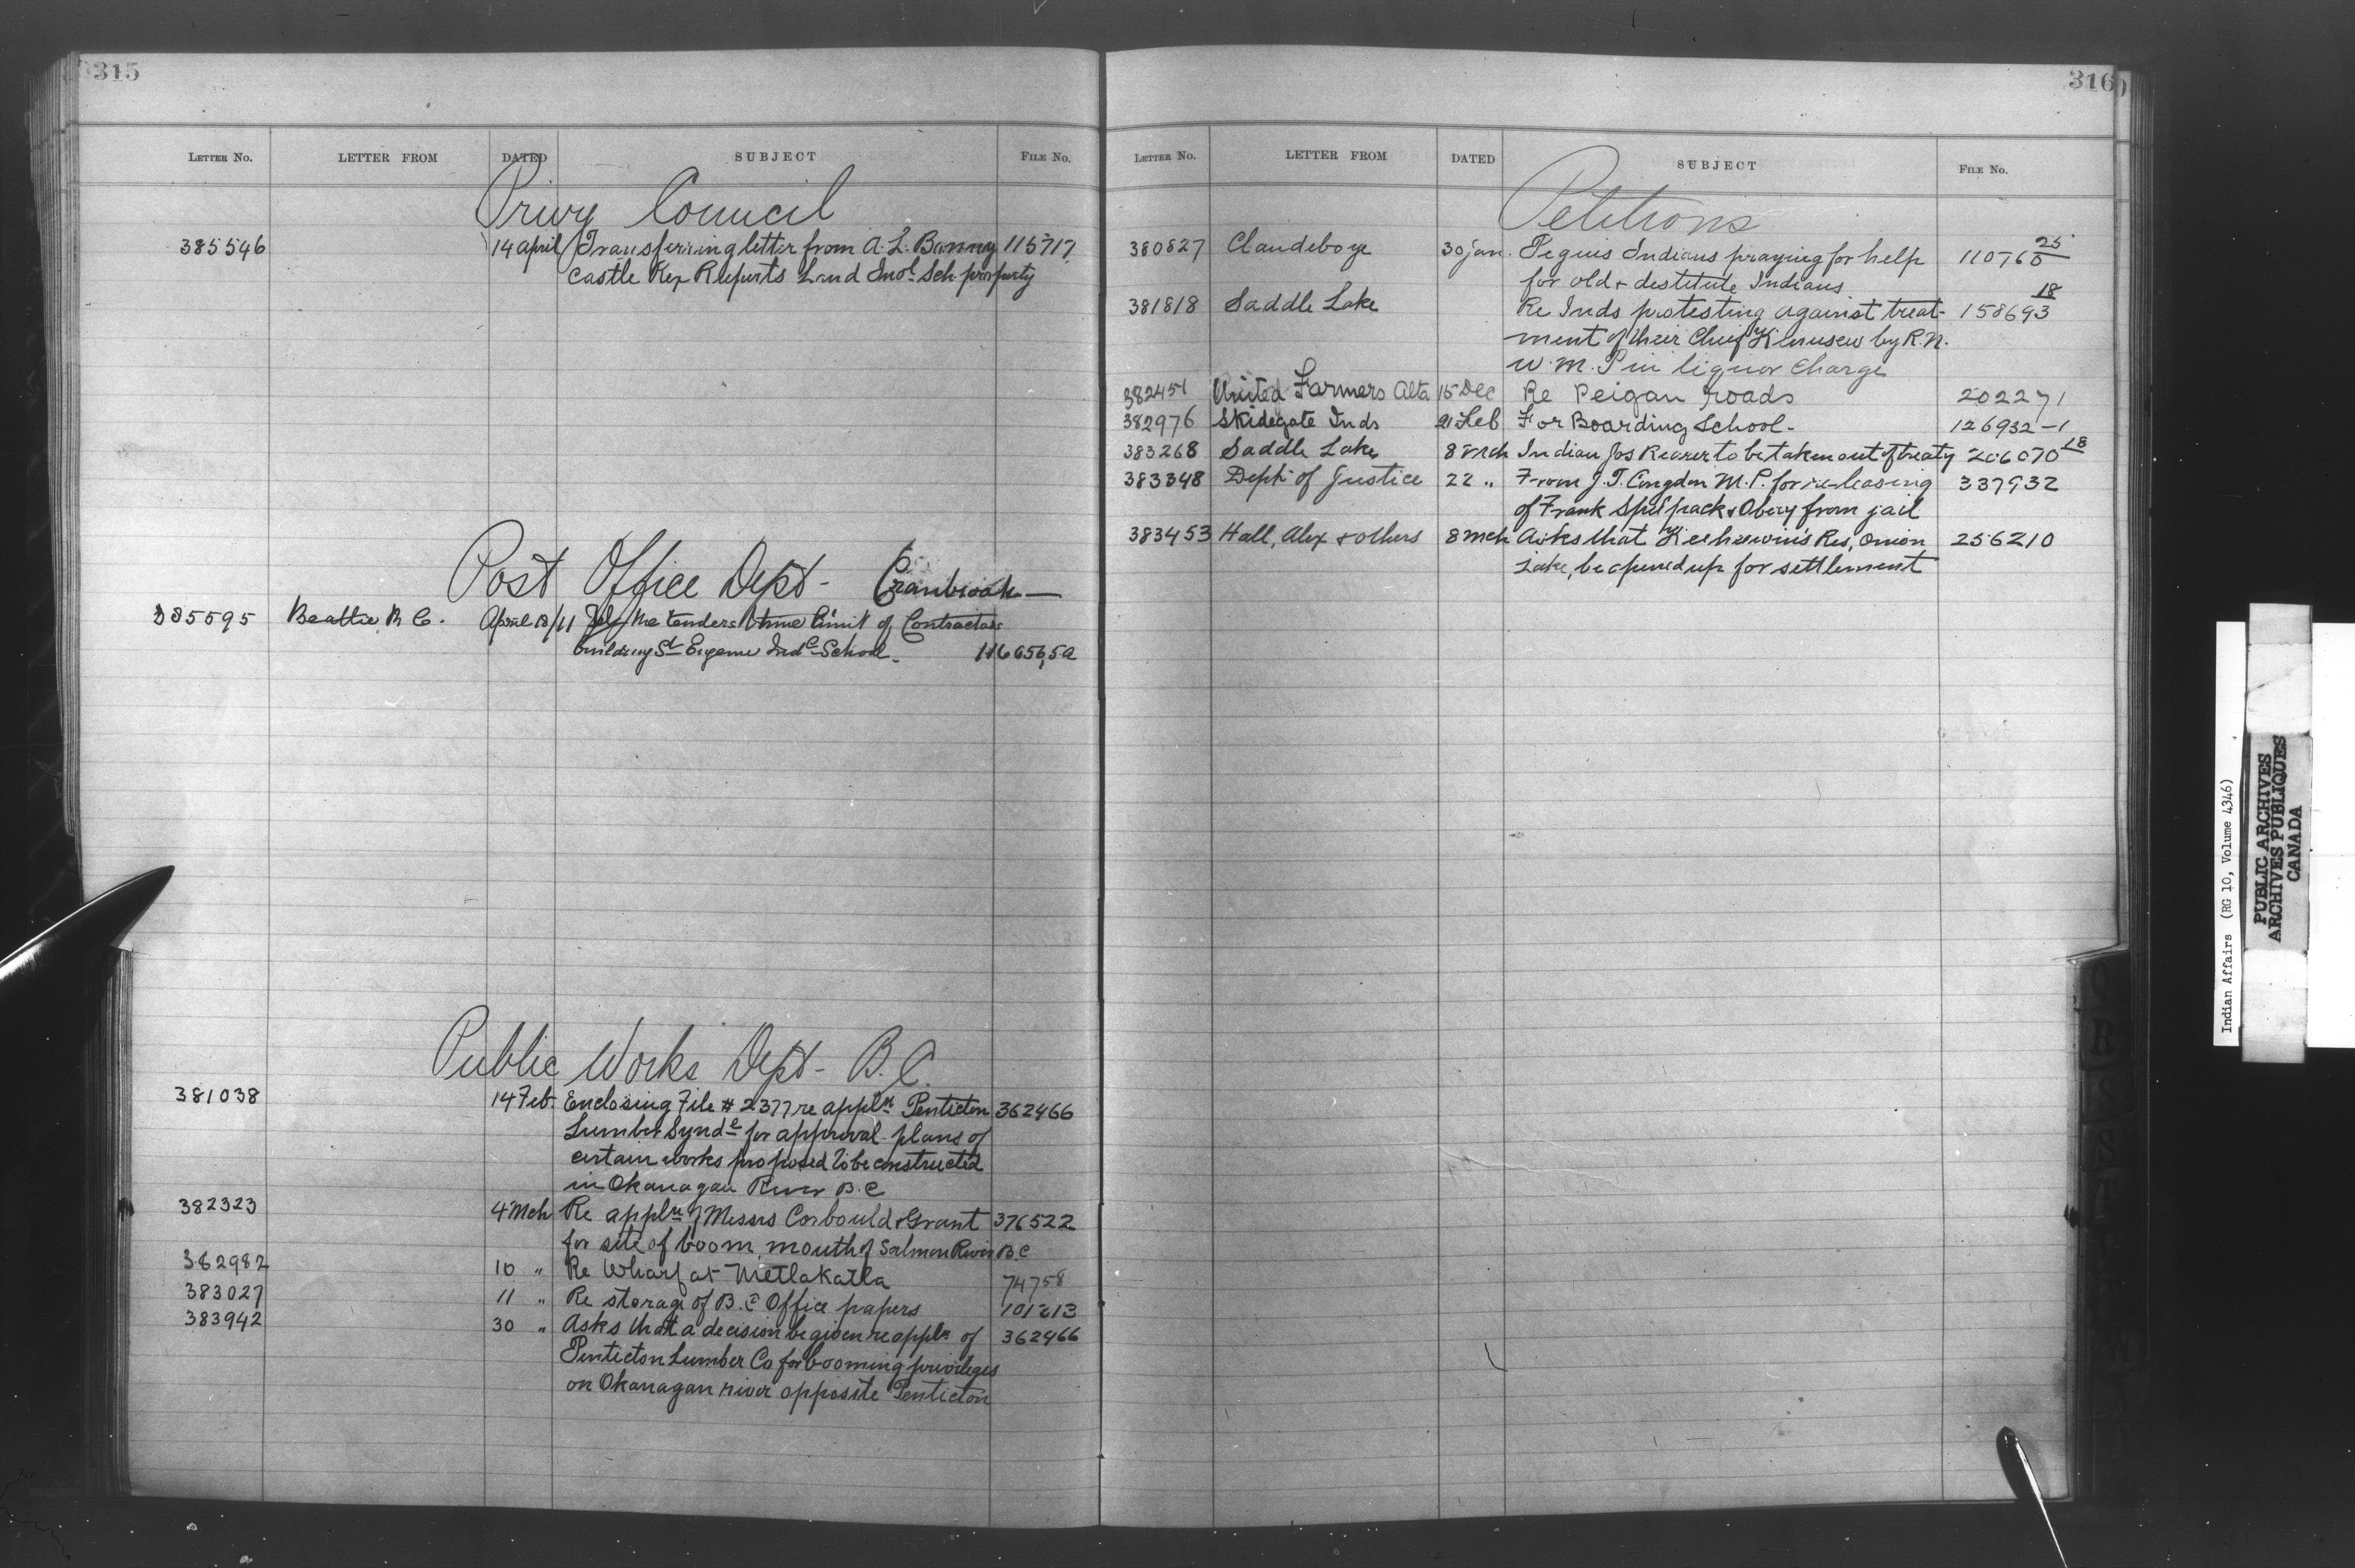 315
LETTER NO. LETTER FROM DATED SUBJECT FILE NO.
Privy Council
385546 14 April Transferring letter from A. L. 115717
Castle Rex Land Indl. Sch property
Post Office Dept - Cranbrook
385595 Beattie, R C. April 18/11 Tely re tenders & time limit of Contractors
building St Eugene Indl School - 116656,5a
Public Works Dept - B.C.
381038 14 Feb. Enclosing File # 2377 re appln Penticton 362466
Lumber Synde for approval plans of
certain works proposed to be constructed
in Okanagan River B.C
382323 4 Mch Re appln of Messrs Corbould & Grant 376522
for site of boom, mouth of Salmon River B.C
382982 10 " Re Wharf at Metlakatla 74758
383027 11 " Re storage of B.C Office papers 101213
383942 30 " Asks that a decision be given re appln of 362466
Penticton Lumber Co for booming privileges
on Okanagan river opposite Penticton
316
LETTER NO. LETTER FROM DATED SUBJECT FILE NO.
Petitions
380827 Clandeboye 30 Jan. Peguis Indians praying for help 110766 25
for old & destitute Indians
381818 Saddle Lake Re Inds protesting against treat- 158693 18
ment of their Chief Kinusew by R.N.
W.M.P in liquor Charge
382451 United Farmers Alta 15 Dec Re Peigan roads 202271
382976 Skidegate Inds 21 Feb For Boarding School - 126932-1
383268 Saddle Lake 8 Mch Indian Jos to be taken out of treaty 206070 18
383348 Dept of Justice 22 " From J. T. Congdon M.P. for releasing 337932
of Frank from jail
383453 Hall, Alex & others 8 Mch Asks that Keeheewin's Res, Onion 256210
Lake, be opened up for settlement
Indian Affairs (RG 10, Volume 4346)
PUBLIC ARCHIVES
ARCHIVES PUBLIQUES
CANADA